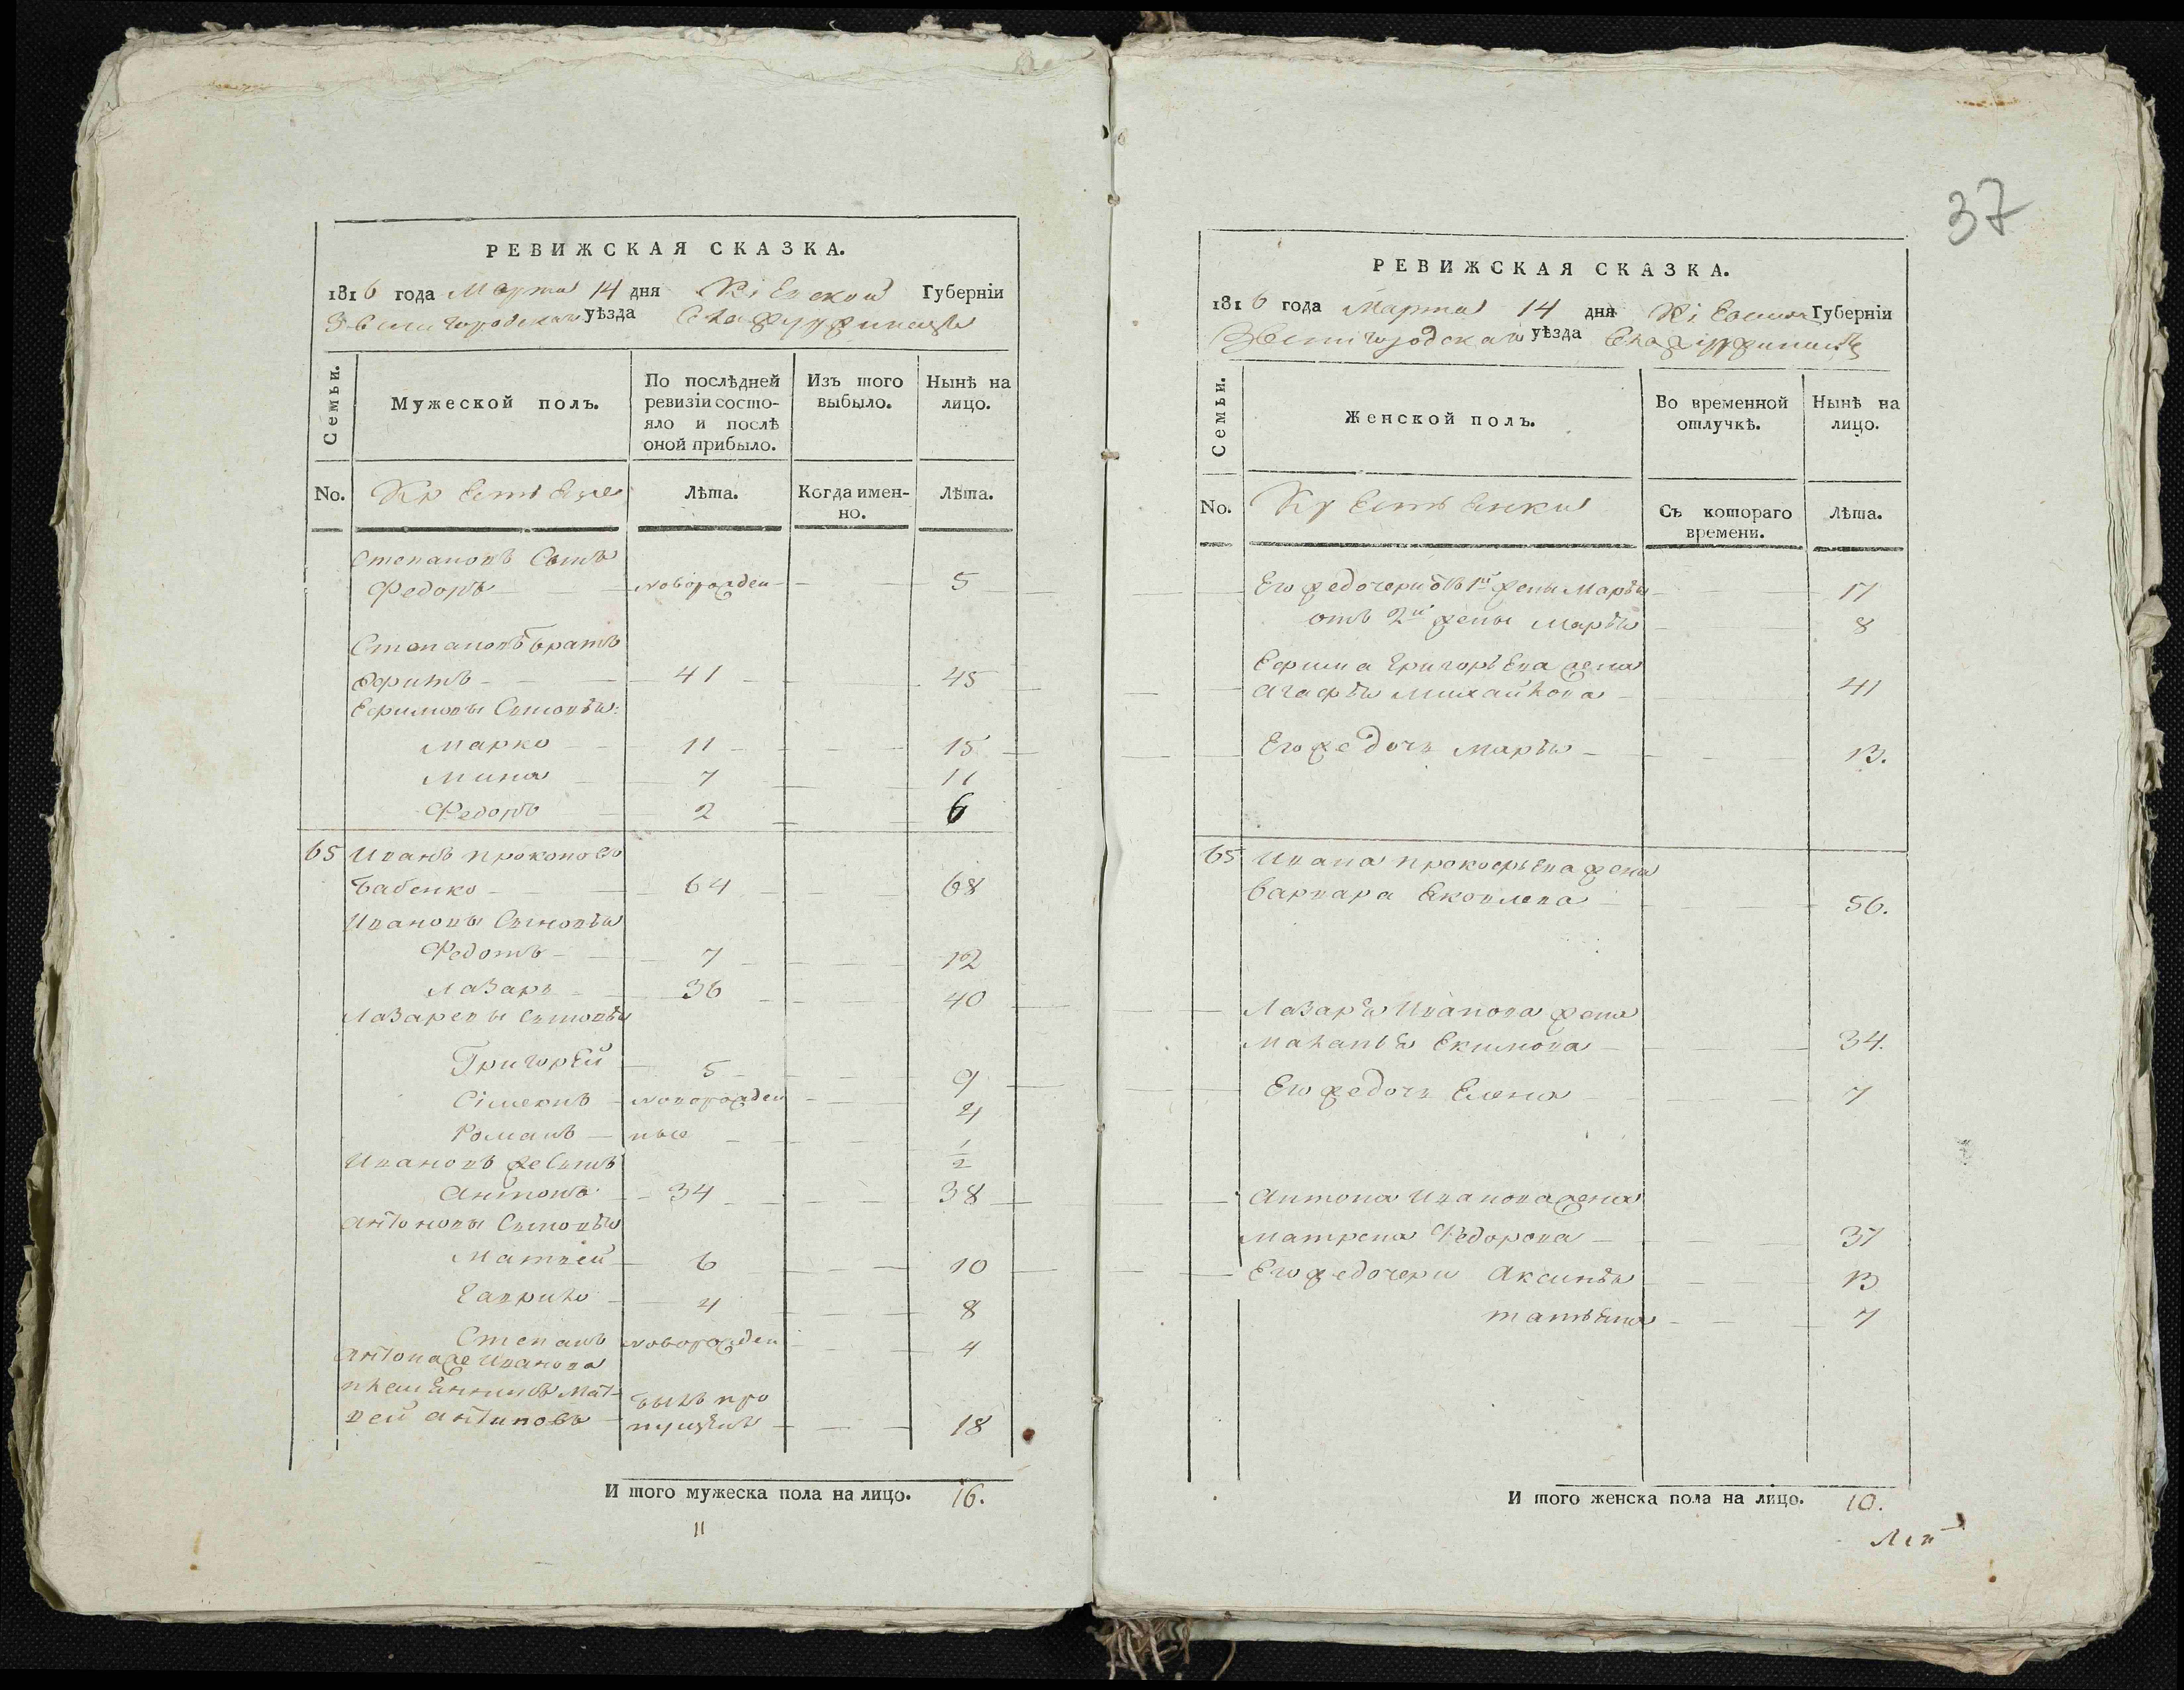 РЕВИЖСКАЯ СКАЗКА.
1816 года Марта 14 дня Кіевской Губерніи
Звенигородскаго уѣзда
Семьи.
Мужеской полъ.
По послѣдней ревизіи состояло и послѣ оной прибыло.
Изъ того выбыло.
Нынѣ на лицо.
No.
Крестьяне
Лѣта.
Когда именно.
Лѣта.
Степановъ Сынъ
Федоръ новорожден 5
Степановъ братъ
Ефимъ 41 45
Ефимовы Сыновья:
Марко 11 15
Мина 7 11
Федоръ 2 6
65 Иванъ Прокоповъ
Бабенко 64 68
Ивановы Сыновья
Федотъ 7 12
Лазарь 36 40
Лазаревы Сыновья
Григорей 5 9
Сімеонъ новорожден 4
Романъ ные 1/2
Ивановъ же Сынъ
Антонъ 34 38
Антоновы Сыновья
Матвей 6 10
Гаврило 4 8
Степанъ новорожден 4
Антона же Иванова
племенникъ Мат-
вей Антиповъ былъ про
пущенъ 18
И того мужеска пола на лицо. 16.
11
37
РЕВИЖСКАЯ СКАЗКА.
1816 года Марта 14 дня Кіевской Губерніи
Звенигородскаго уѣзда
Семьи.
Женской полъ.
Во временной отлучкѣ.
Нынѣ на лицо.
No.
Крестьянки
Съ котораго времени.
Лѣта.
Его же дочери отъ 1й жены Марья 17
отъ 2й жены Марья 8
Ефима Григорьева жена
Агафья Михайлова 41
Его же дочь Марья 13.
65 Ивана Прокофьева жена
Варвара Яковлева 56.
Лазаря Иванова жена
Маланья Екимова 34.
Его же дочь Елена 7
Антона Иванова жена
Матрена Федорова 37
Его же дочери Аксинья 13
Татьяна 7
И того женска пола на лицо. 10.